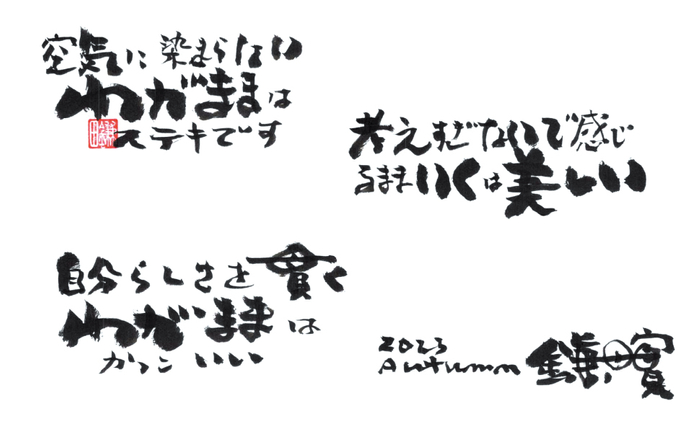 空気に染まらない
わがままは
ステキです
考えすぎないで感じ
るままいくは美しい
自分らしさを貫く
わがままは
かっこいい
2023
Autumn